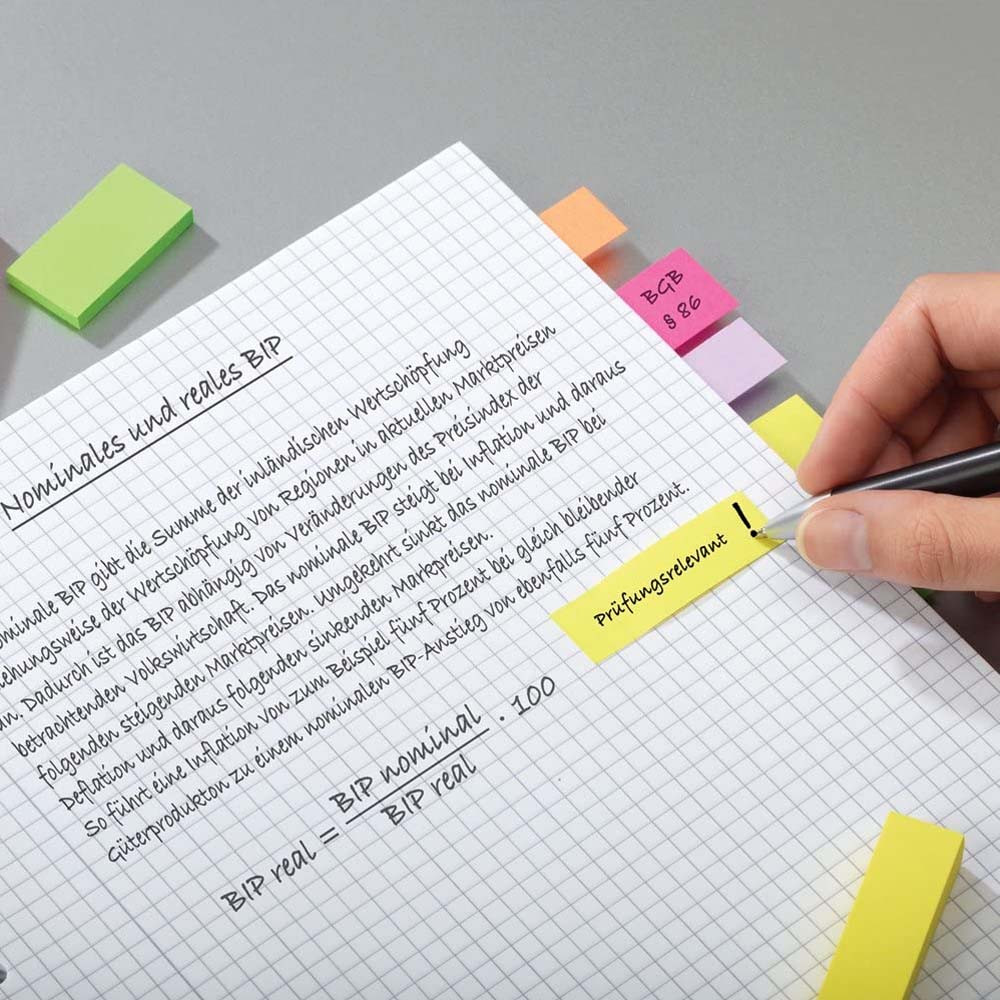 Nominales und reales BIP
ominale BIP gibt die Summe der inländischen Wertschöpfung
iehungsweise der Wertschöpfung von Regionen in aktuellen Marktpreisen
an. Dadurch ist das BIP abhängig von Veränderungen des Preisindex der
betrachtenden Volkswirtschaft. Das nominale BIP steigt bei Inflation und daraus
folgenden steigenden Marktpreisen. Umgekehrt sinkt das nominale BIP bei
Deflation und daraus folgenden sinkenden Marktpreisen.
So führt eine Inflation von zum Beispiel fünf Prozent bei gleich bleibender
Güterprodukton zu einem nominalen BIP-Anstieg von ebenfalls fünf Prozent.
BIP real = BIP nominal / BIP real · 100
BGB
§ 86
Prüfungsrelevant !